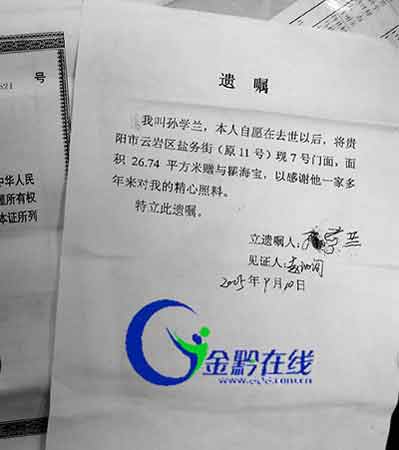 号
821
中华人民
所有权
本证所列
遗嘱
我叫孙学兰，本人自愿在去世以后，将贵
阳市云岩区盐务街（原11号）现7号门面，面
积26.74平方米赠与瞿海宝，以感谢他一家多
年来对我的精心照料。
特立此遗嘱。
立遗嘱人：
见证人：
2005年9月10日
金黔在线